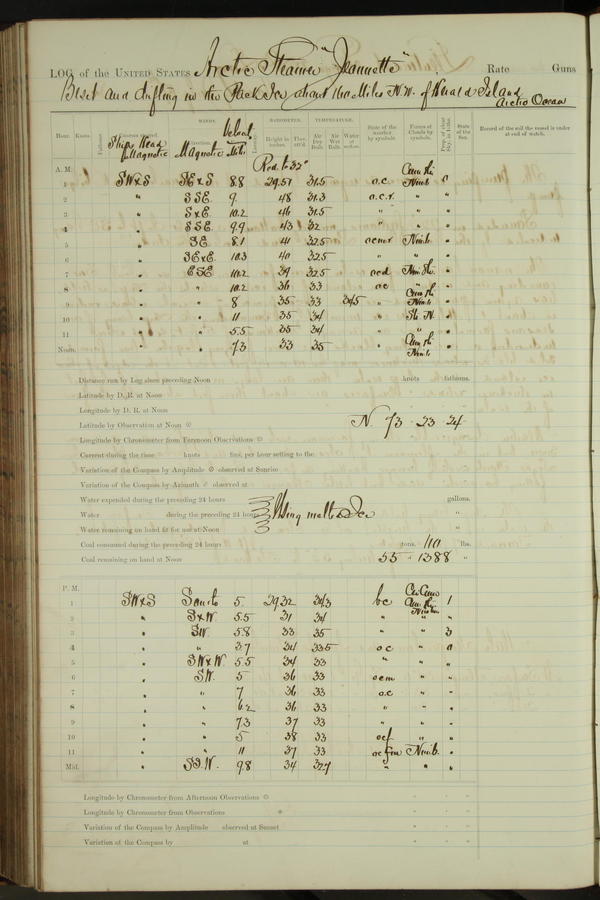 LOG of the UNITED STATES Arctic Steamer "Jeannette" Rate Guns
Beset and drifting in the Pack Ice about 160 Miles N.W. of Herald Island
Arctic Ocean
Hour. Knots. WINDS. BAROMETER. TEMPERATURE. State of the weather by symbols. Forms of Clouds by symbols. State of the Sea. Record of the sail the vessel is under at end of watch.
Ships Head Magnetic Magnetic Height in inches. Ther. att'd. Air Dry Bulb. Air Wet Bulb. Water at surface.
A. M. Red. to 32°
1 SW&S SE&S 8.8 29.51 31.5 o.c. 0
2 " SSE 9. 48 31.3 o.c.r. " "
3 " S&E 10.2 46 31.5 " " "
4 " SSE 9.9 43 32 " " "
5 " SE 8.1 41 32.5 Nimb. "
6 " SE&E 10.3 40 32.5 " " "
7 " ESE 10.2 39 32.5 ocd "
8 " " 10.2 36 33 oc " "
9 " " 8 35 33 34.5 " Nimb. "
10 " " 11 35 34 " St. N. "
11 " " 5.5 35 34 " " "
Noon. " " 7.3 33 35 " Nimb. "
Distance run by Log since preceding Noon knots fathoms.
Latitude by D. R. at Noon
Longitude by D. R. at Noon
Latitude by Observation at Noon N. 73 23 24
Longitude by Chronometer from Forenoon Observations
Current during the time knots fms. per hour setting to the
Variation of the Compass by Amplitude observed at Sunrise
Variation of the Compass by Azimuth observed at
Water expended during the preceding 24 hours gallons.
Water during the preceding 24 hours Using melted Ice "
Water remaining on hand fit for use at Noon "
Coal consumed during the preceding 24 hours tons. 110 lbs.
Coal remaining on hand at Noon 55 " 1388 "
P. M.
1 SW&S South 5. 29.32 34.3 bc 1
2 " S&W. 5.5 31 34 " " "
3 " SW. 5.8 33 35 " " 3
4 " " 3.7 34 33.5 oc " 0
5 " SW&W. 5.5 34 33 " " "
6 " S.W. 5 36 33 ocm " "
7 " " 7 36 33 o.c " "
8 " " 6.2 36 33 " " "
9 " " 7.3 37 33 " " "
10 " " 5 38 33 ocf " "
11 " " 11 37 33 Nimb. "
Mid. " SS.W. 9.8 34 32.7 " " "
Longitude by Chronometer from Afternoon Observations
Longitude by Chronometer from Observations
Variation of the Compass by Amplitude observed at Sunset
Variation of the Compass by at